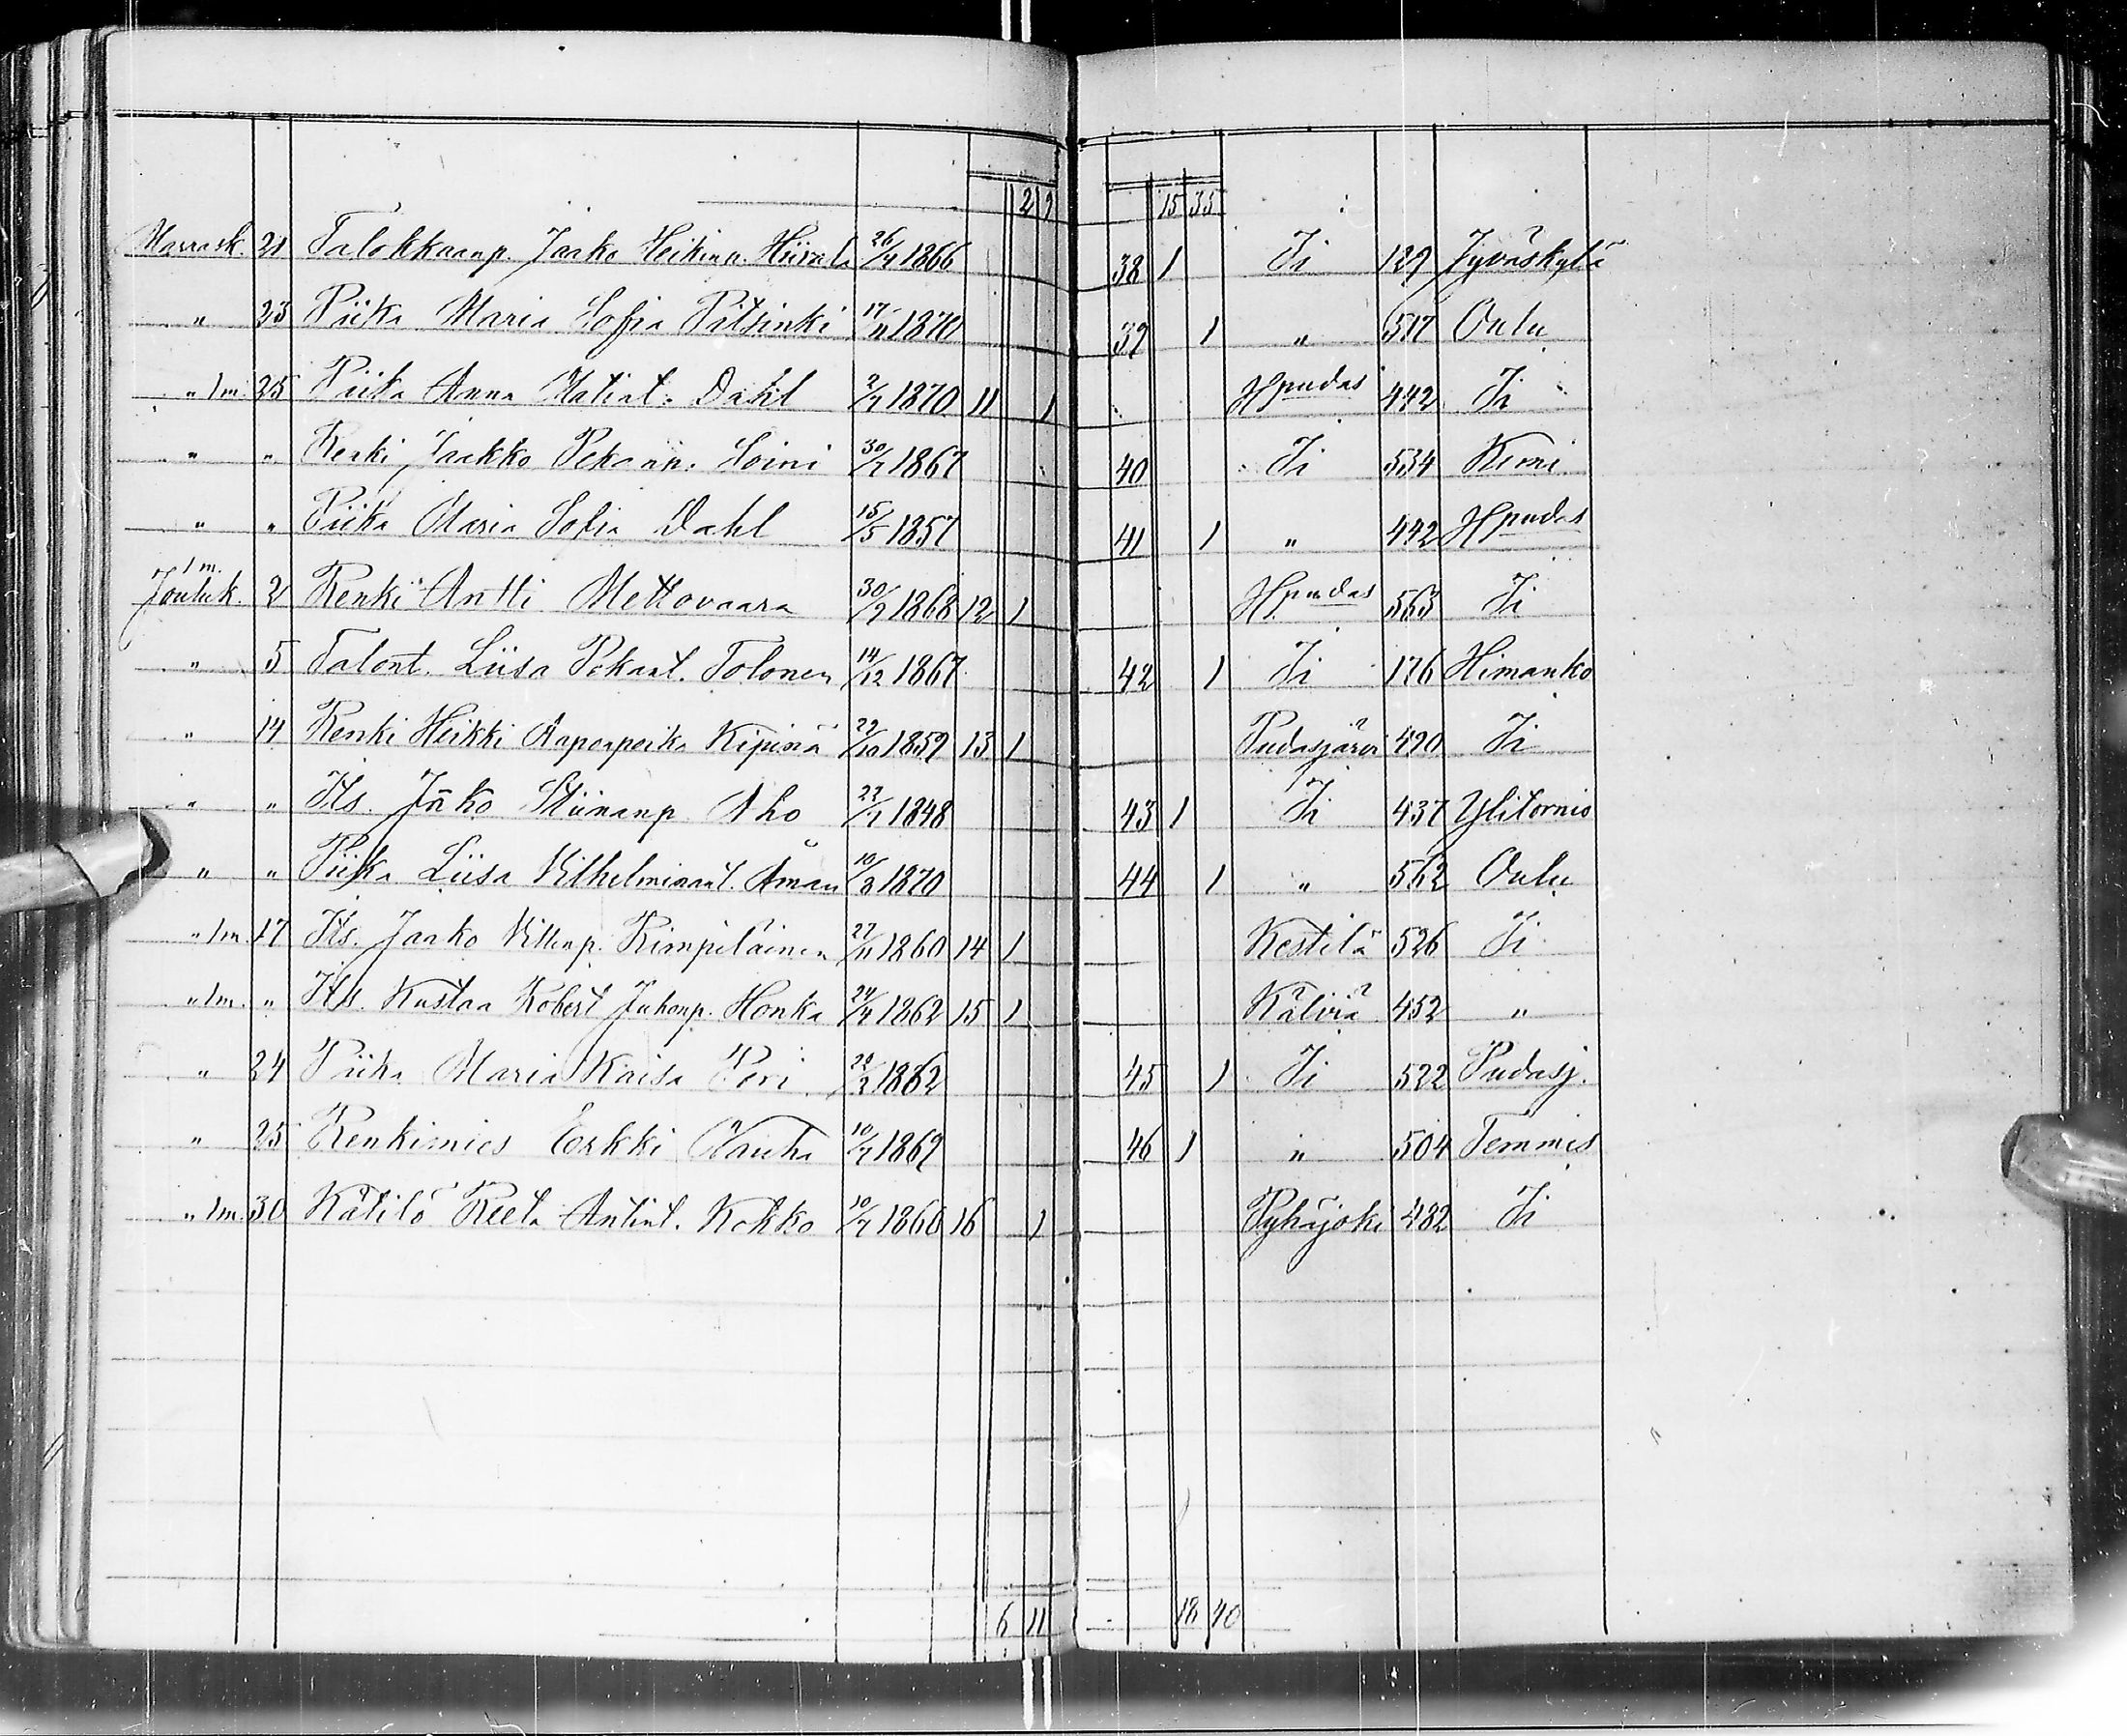 2 9 15 35
Marrask. 21 Talokkaanp. Jaako Heikinp. Hiivala 26/4 1866 38 1 Ii 129 Jyväskylä
" 23 Piika Maria Sofia Pitsinki 17/11 1870 39 1 " 517 Oulu
" 1m. 25 Piika Anna Matint. Dahl 2/7 1870 11 1 Hpudas 442 Ii
" " Renki Jaakko Pekanp. Soini 30/7 1867 40 Ii 534 Kemi
" " Piika Maria Sofia Dahl 15/5 1857 41 1 " 442 Hpudas
1m.
Jouluk. 2 Renki Antti Mettovaara 30/9 1868 12 1 Hpudas 563 Ii
" 5 Talont. Liisa Pekant. Tolonen 14/12 1867 42 1 Ii 176 Himanko
" 14 Renki Heikki Aaperpoika Kipinä 22/10 1859 13 1 Pudasjärvi 490 Ii
" " Its. Jako Stiinanp. Aho 27/1 1848 43 1 Ii 437 Ylitornio
" " Piika Liisa Vilhelminant. Åman 10/3 1870 44 1 " 562 Oulu
" 1m. 17 Its. Jaako Villenp. Rimpiläinen 27/11 1860 14 1 Kestilä 526 Ii
" 1m. " Its. Kustaa Robert Juhonp. Honka 24/4 1862 15 1 Kälviä 452 "
" 24 Piika Maria Kaisa 22/2 1862 45 1 Ii 522 Pudasj.
" 25 Renkimies Erkki Nauha 10/7 1869 46 1 " 504 Temmes
" 1m. 30 Kätilö Reeta Antint. Kokko 10/7 1860 16 1 Pyhäjoki 482 Ii
6 11 18 40